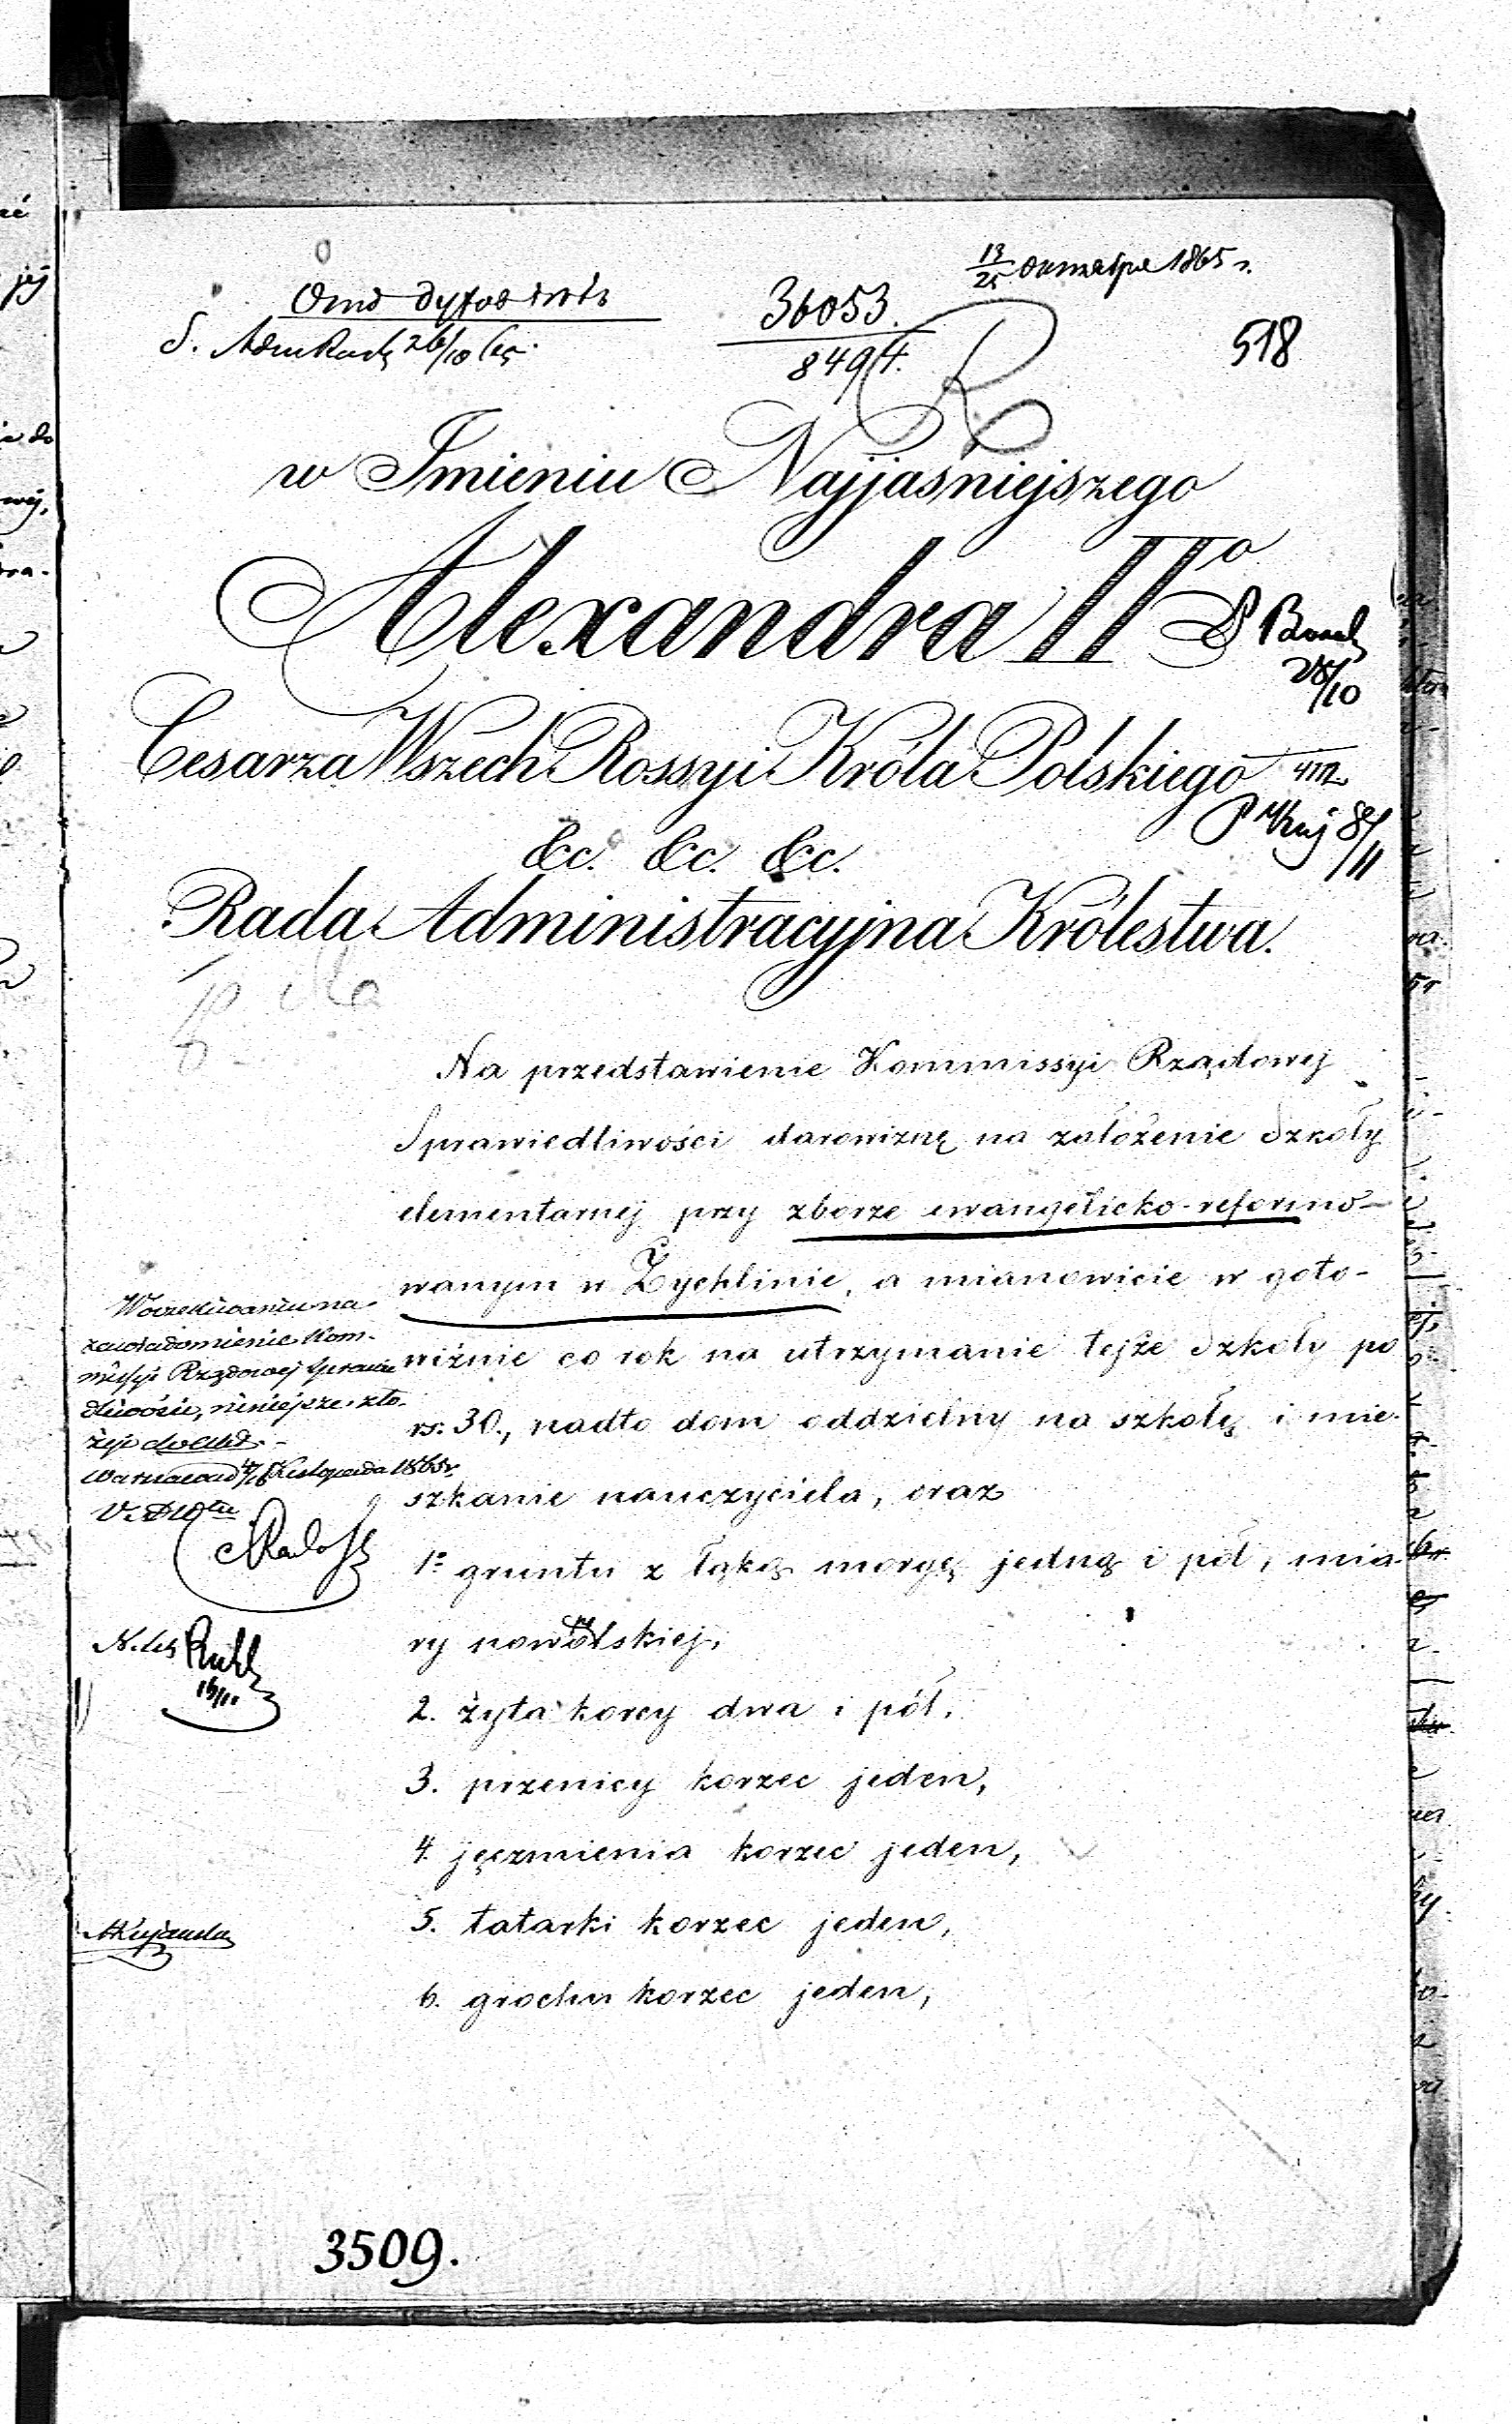 13/25 октября 1865 г.
36053.
8494.
518
26/10 65.
w Imieniu Najjaśniejszego
Alexandra IIgo
28/10
Cesarza Wszech Rossyi Króla Polskiego
&c. &c. &c.
8/11
Rada Administracyjna Królestwa.
Na przedstawienie Kommissyi Rządowej
Sprawiedliwości darowiznę na założenie Szkoły
elementarnej przy zborze ewangelicko-reformo-
wanym w Żychlinie, a mianowicie w goto-
wiźnie co rok na utrzymanie tejże Szkoły po
rs. 30., nadto dom oddzielny na szkołę i mie-
szkanie nauczyciela, oraz
1º gruntu z łąką morgę jedną i pół, mia-
ry nowopolskiej,
2. żyta korcy dwa i pół,
3. pszenicy korzec jeden,
4. jęczmienia korzec jeden,
5. tatarki korzec jeden,
6. grochu korzec jeden,
W oczekiwaniu na
zawiadomienie Kom-
missyi Rządowej Sprawie
dliwości, niniejsze zło-
żyć do akt.
Warszawa d. 4/16 Listopada 1865 r.
3509.